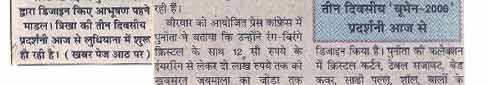 द्वारा डिजाइन किए आभूषण पहने
माडल। त्रिखा की तीन दिवसीय
प्रदर्शनी आज से लुधियाना में शुरू
हो रही है। ( खबर पेज आठ पर )
रही हैं।
वीरवार को आयोजित प्रेस कांफ्रेंस में
पुनीता ने बताया कि उन्होंने रंग-बिरंगे
क्रिस्टल के साथ 12 सौ रुपये के
ईयररिंग से लेकर दो लाख रुपये तक की
खूबसूरत जयमाला का जोड़ा तक
तीन दिवसीय 'वूमेन-2006'
प्रदर्शनी आज से
डिजाइन किया है। पुनीता की कलेक्शन
में क्रिस्टल कर्टन, टेबल सजावट, बेड
कवर, साड़ी पल्लू, शॉल, बालों के